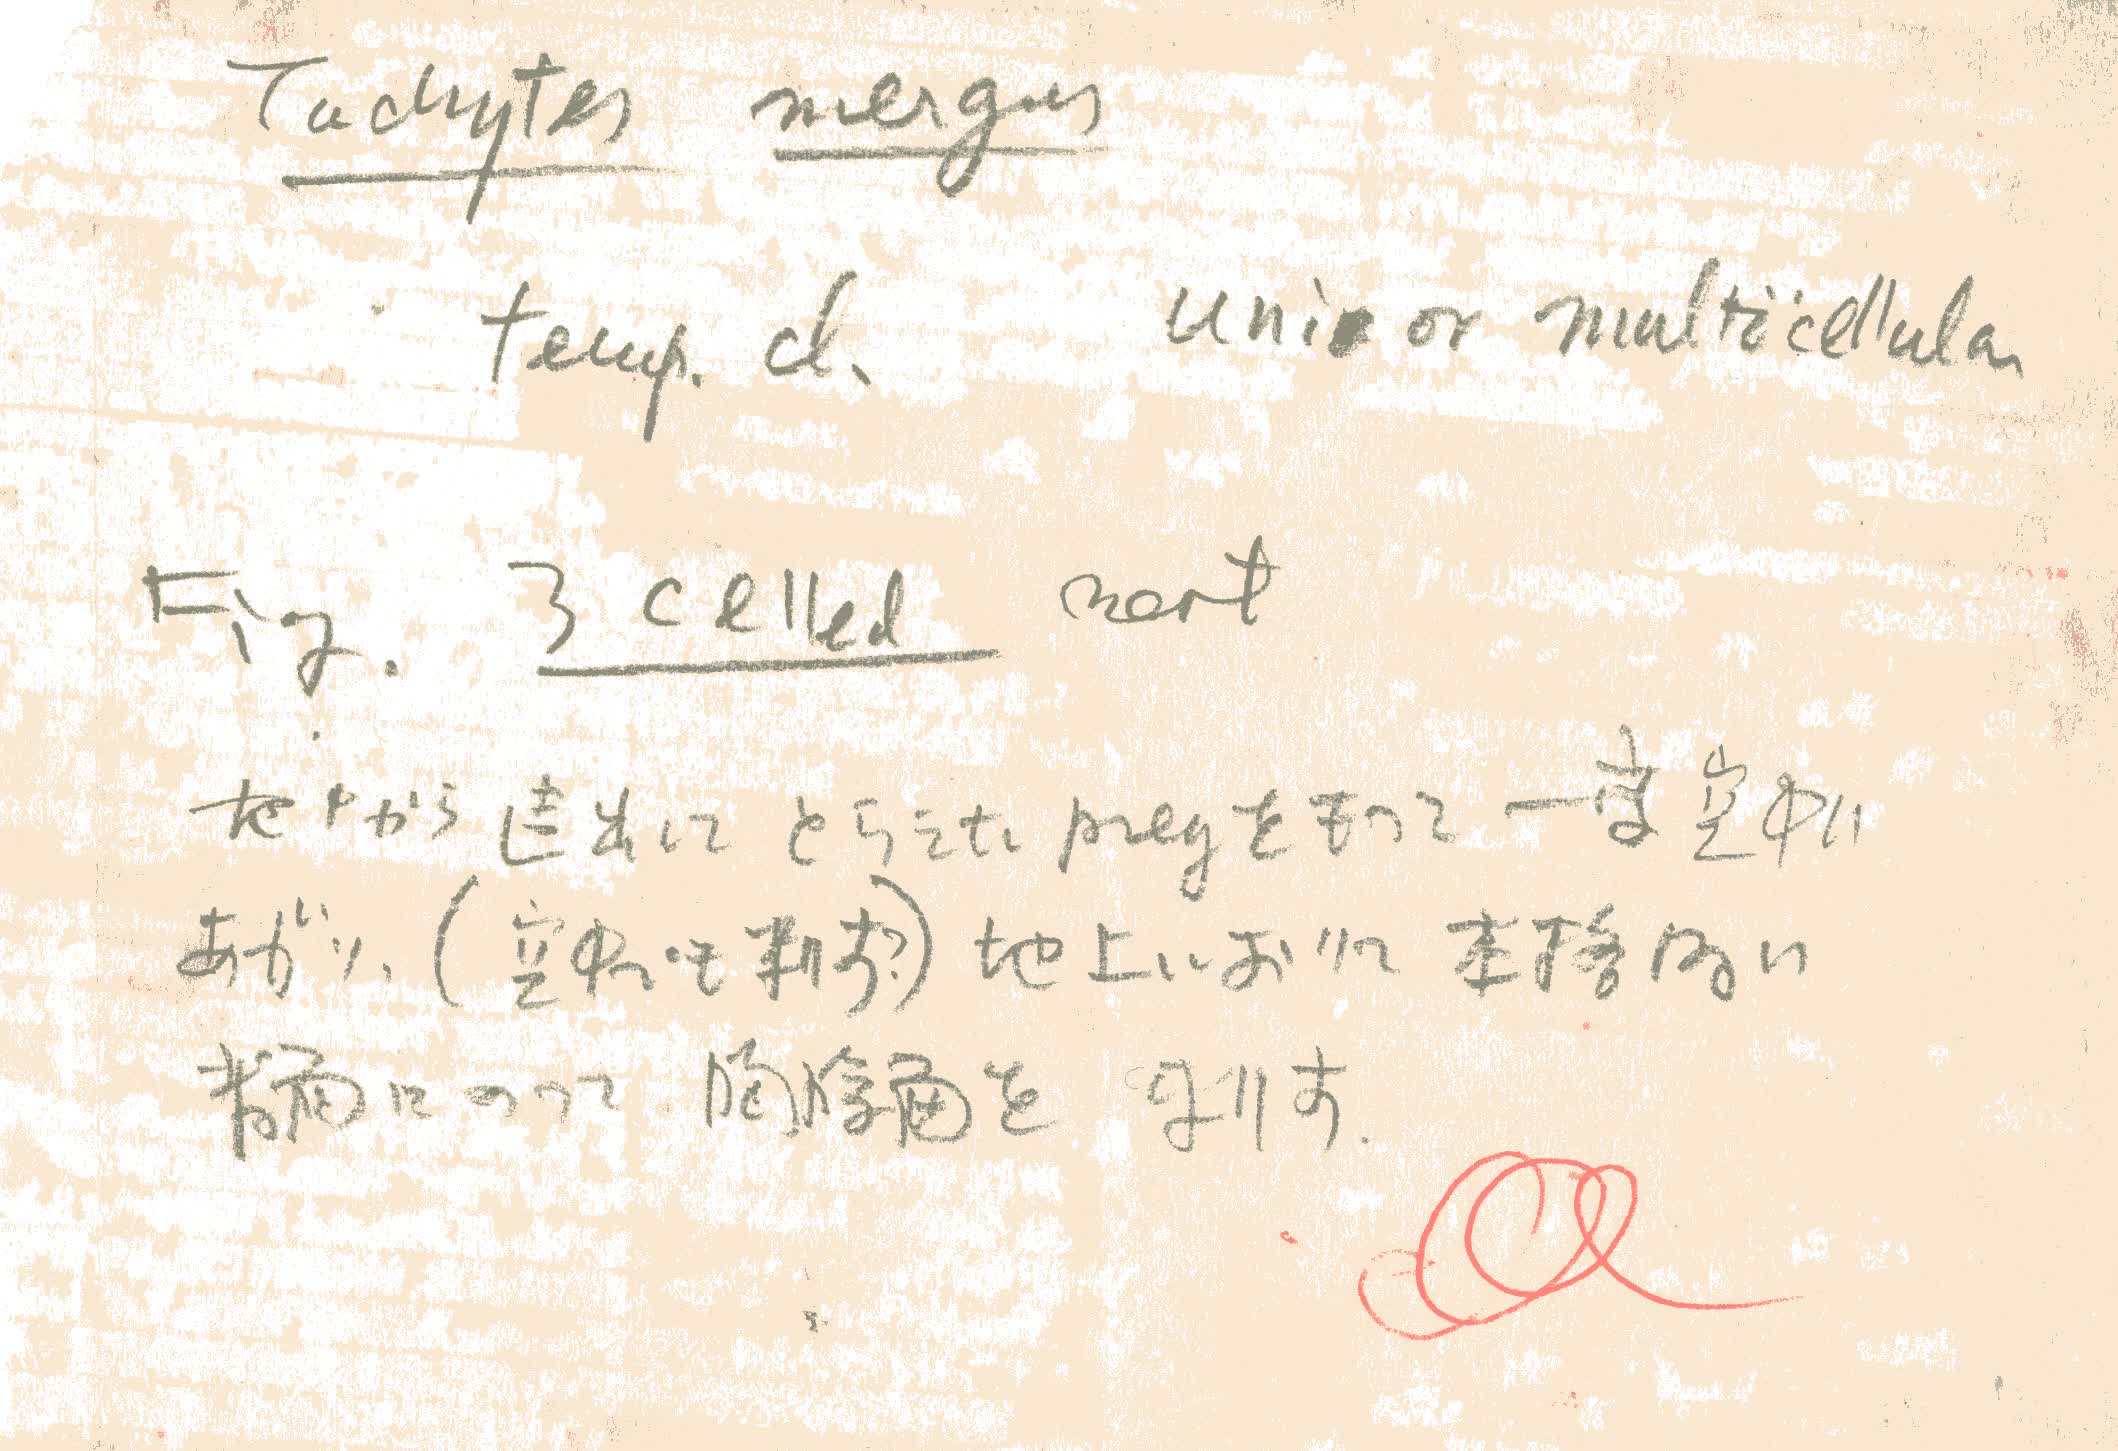 Tachytes mergus
temp. cl. uni or multicellular
Fig. 3 celled nest
地中から追出してとらえた preyをもって一度空中に
あがり、(空中でも刺す?) 地上において本格的に
背面にのって胸腹面を刺す.